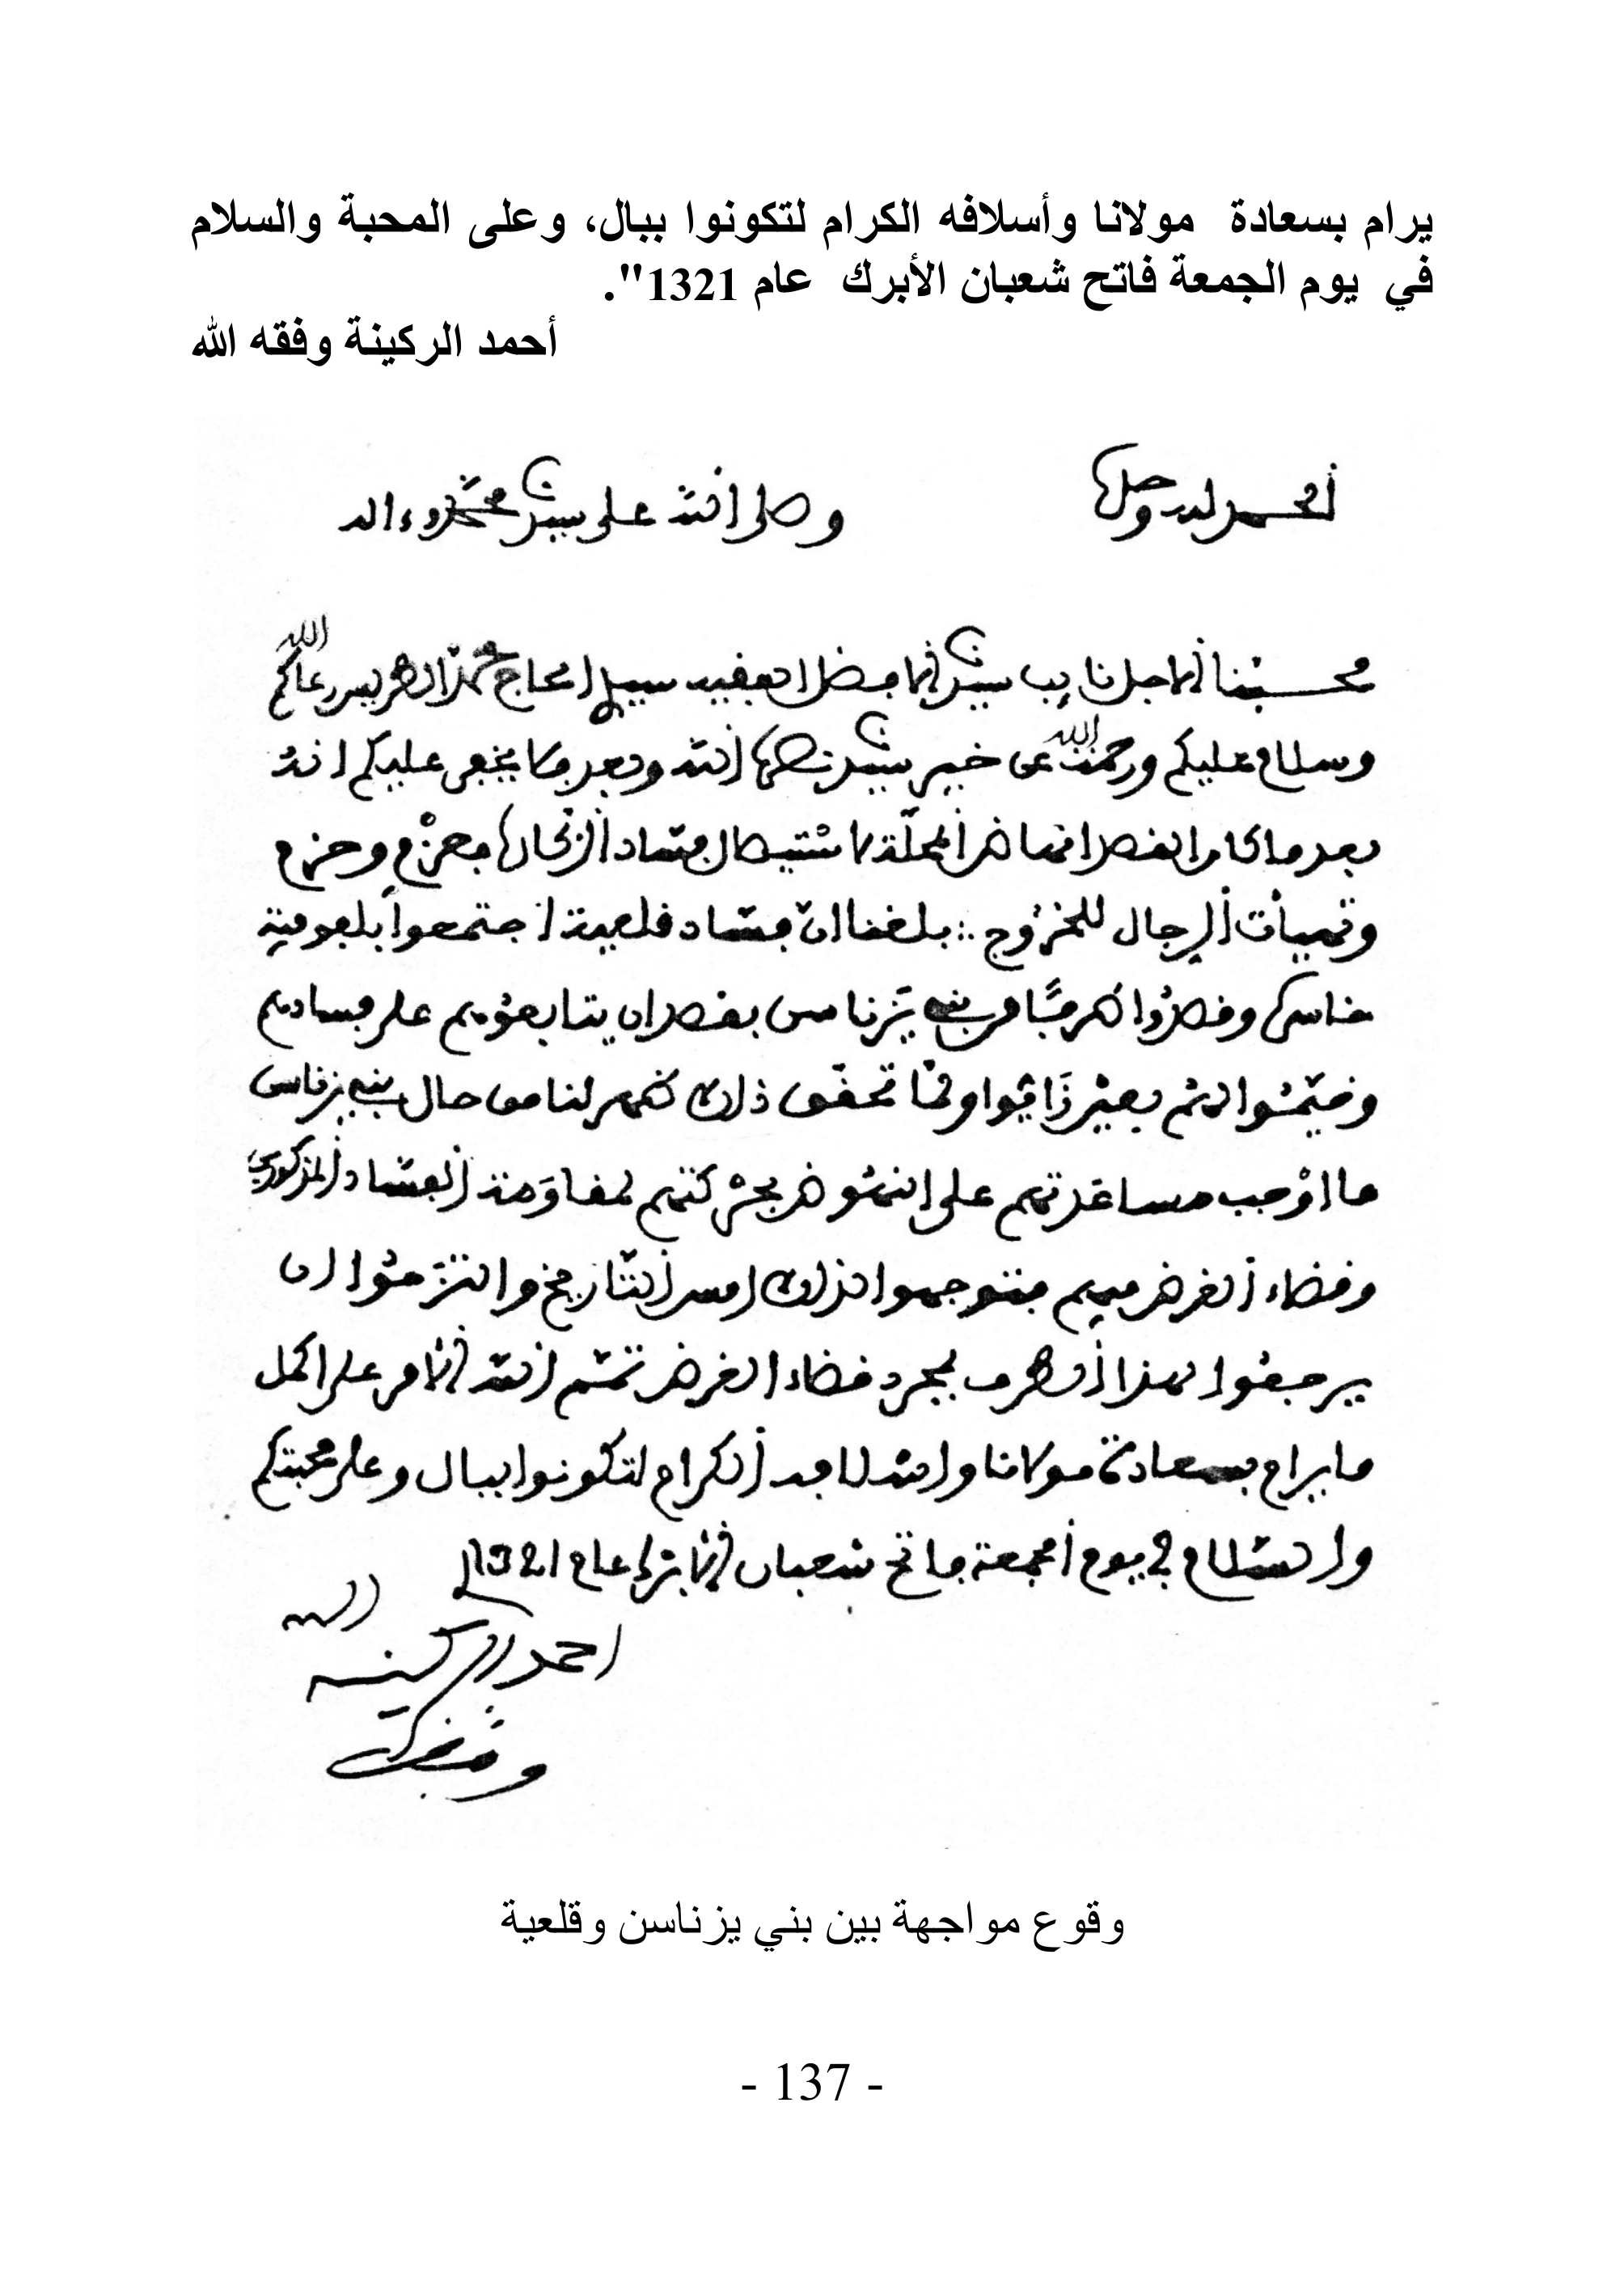 يرام بسعادة مولانا وأسلافه الكرام لتكونوا ببال، وعلى المحبة والسلام
في يوم الجمعة فاتح شعبان الأبرك عام 1321".
أحمد الركينة وفقه الله
الحمد لله وحده
وصلى الله على سيدنا محمد وءاله
محبنا الأجل نايب سيدنا الأفضل الفقيه سيدي الحاج محمد الطريس رعاكم الله
وسلام عليكم ورحمت الله عن خير سيدنا نصره الله وبعد فلا يخفى عليكم انه
بعد ما كان القصد انهاض المحلة لاستيصال فساد الزكارة بعزم وحزم
وتهيأت الرجال للخروج بلغنا ان فساد قلعية اجتمعوا بلعوينة
خاسن وقصدوا طرفا من بني يزناسن بقصد ان يتابعوهم على فسادهم
وحيث تحقق ذلك ظهر لنا من حال بني يزناسن
ما اوجب مساعدتهم على النهوض بحركتهم لمقاومة الفساد المذكورين
وقضاء الغرض فيهم فتوجهوا لذلك امس التاريخ والتزموا ان
يرجعوا لهذا الطرف بمجرد قضاء الغرض تمم الله الامر على اكمل
ما يرام بسعادة مولانا واسلافه الكرام لتكونوا ببال وعلى محبتكم
والسلام في يوم الجمعة فاتح شعبان الأبرك عام 1321
احمد الركينه
وفقه الله
وقوع مواجهة بين بني يزناسن وقلعية
- 137 -